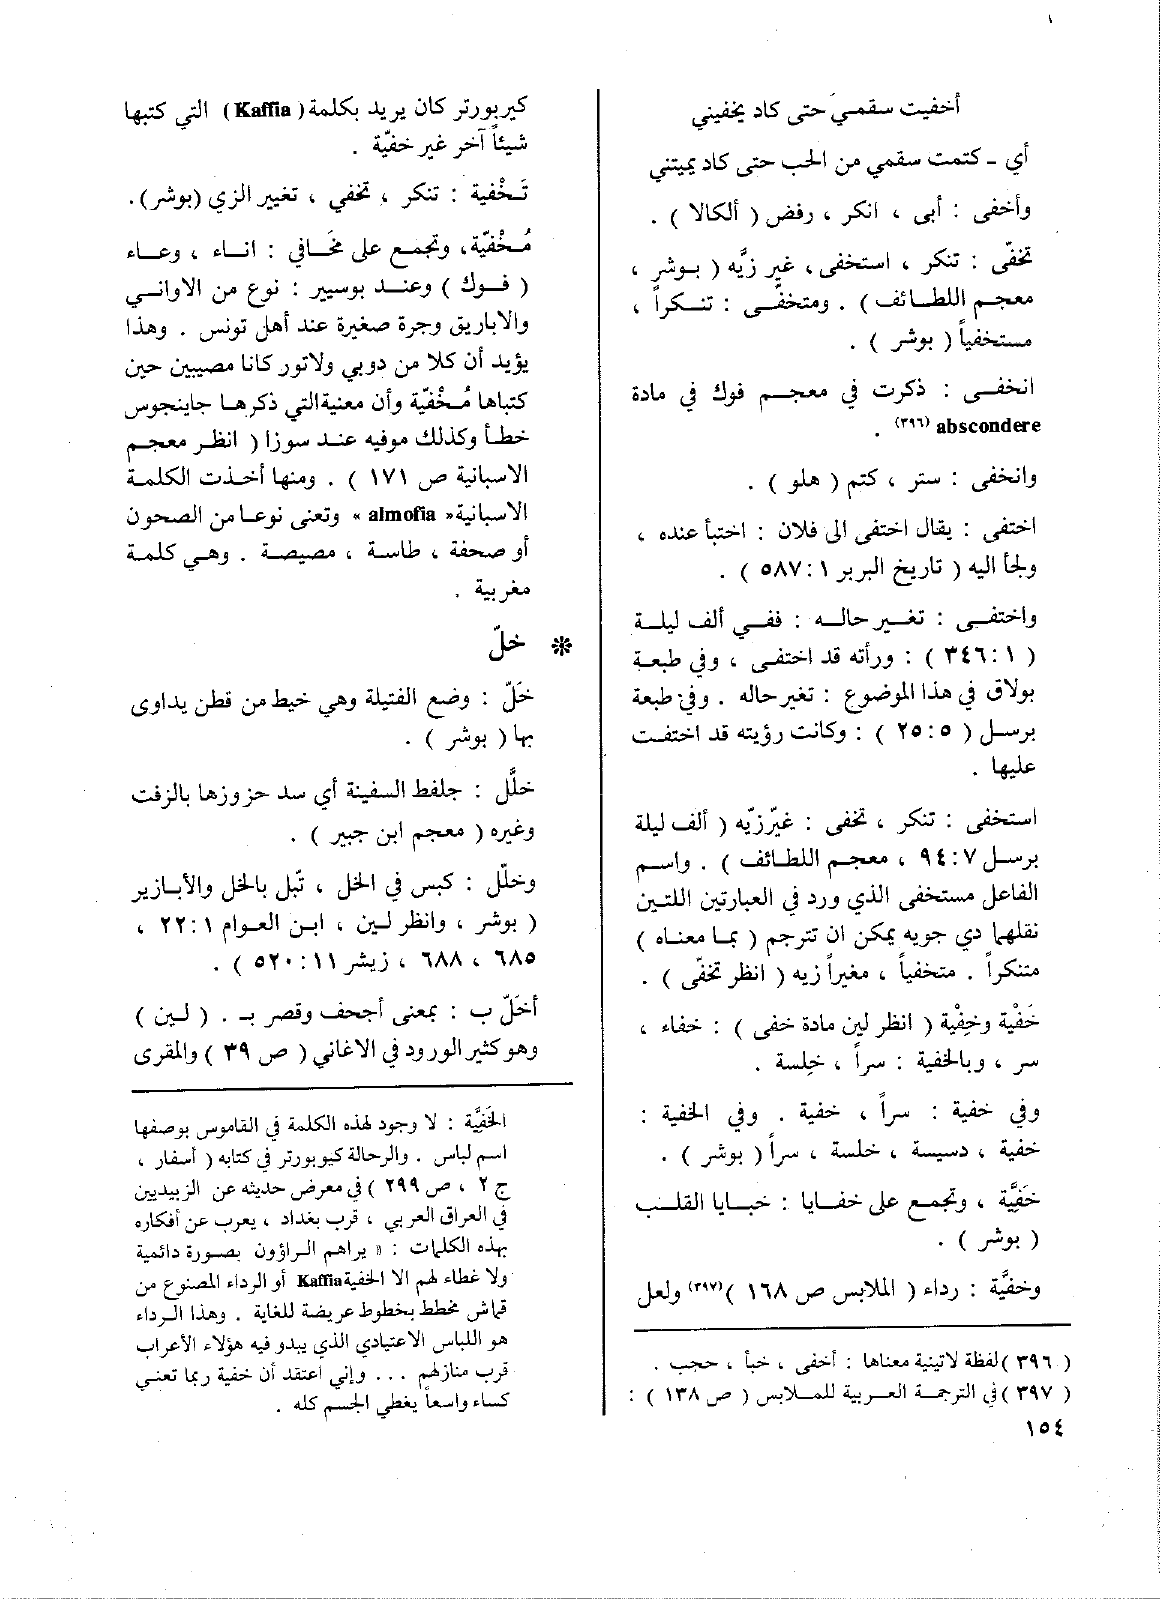 أخفيت سقمي حتى كاد يخفيني
أي ـ كتمت سقمي من الحب حتى كاد يميتني
وأخفى : أبى ، انكر ، رفض ( ألكالا ) .
تخفّى : تنكر ، استخفى ، غير زيَّه ( بوشر ،
معجم اللطائف ) . ومتخفٍّى : تنكراً ،
مستخفياً ( بوشر ) .
انخفى : ذكرت في معجم فوك في مادة
abscondere (٣٩٦) .
وانخفى : ستر ، كتم ( هلو ) .
اختفى : يقال اختفى الى فلان : اختبأ عنده ،
ولجأ اليه ( تاريخ البربر ١ : ٥٨٧ ) .
واختفى : تغير حاله : ففي ألف ليلة
( ١ : ٣٤٦ ) : ورأته قد اختفى ، وفي طبعة
بولاق في هذا الموضوع : تغير حاله . وفي طبعة
برسل ( ٥ : ٢٥ ) : وكانت رؤيته قد اختفت
عليها .
استخفى : تنكر ، تخفى : غيّر زيّه ( ألف ليلة
برسل ٧ : ٩٤ ، معجم اللطائف ) . واسم
الفاعل مستخفى الذي ورد في العبارتين اللتين
نقلهما دي جويه يمكن ان تترجم ( بما معناه )
متنكراً . متخفياً ، مغيراً زيه ( انظر تخفّى ) .
خَفْية وخِفْية ( انظر لين مادة خفى ) : خفاء ،
سر ، وبالخفية : سراً ، خلسة .
وفي خفية : سراً ، خفية . وفي الخفية :
خفية ، دسيسة ، خلسة ، سراً ( بوشر ) .
خَفيَّة ، وتجمع على خفايا : خبايا القلب
( بوشر ) .
وخفيَّة : رداء ( الملابس ص ١٦٨ )(٣٩٧) ولعل
( ٣٩٦ ) لفظة لاتينية معناها : أخفى ، خبأ ، حجب .
( ٣٩٧ ) في الترجمة العربية للملابس ( ص ١٣٨ ) :
١٥٤
كيربورتر كان يريد بكلمة ( Kaffia ) التي كتبها
شيئاً آخر غير خفيّة .
تَخْفية : تنكر ، تخفي ، تغيير الزي (بوشر) .
مُخْفيّة، وتجمع على مخَافي : اناء ، وعاء
( فوك ) وعند بوسيير : نوع من الاواني
والاباريق وجرة صغيرة عند أهل تونس . وهذا
يؤيد أن كلا من دوبي ولاتور كانا مصيبين حين
كتباها مُخْفيّة وأن معنية التي ذكرها جاينجوس
خطأ وكذلك موفيه عند سوزا ( انظر معجم
الاسبانية ص ١٧١ ) . ومنها أخذت الكلمة
الاسبانية « almofia » وتعنى نوعا من الصحون
أو صحفة ، طاسة ، مصيصة . وهي كلمة
مغربية .
* خلّ
خَلّ : وضع الفتيلة وهي خيط من قطن يداوى
بها ( بوشر ) .
خلَّل : جلفط السفينة أي سد حزوزها بالزفت
وغيره ( معجم ابن جبير ) .
وخلّل : كبس في الخل ، تبّل بالخل والأبازير
( بوشر ، وانظر لين ، ابن العوام ١ : ٢٢ ،
٦٨٥ ، ٦٨٨ ، زيشر ١١ : ٥٢٠ ) .
أخلّ ب : بمعنى أجحف وقصر بـ . ( لين )
وهو كثير الورود في الاغاني ( ص ٣٩ ) والمقرى
الخَفيَّة : لا وجود لهذه الكلمة في القاموس بوصفها
اسم لباس . والرحالة كيوبورتر في كتابه ( أسفار ،
ج ٢ ، ص ٢٩٩ ) في معرض حديثه عن الزبيديين
في العراق العربي ، قرب بغداد ، يعرب عن أفكاره
بهذه الكلمات : « يراهم الراؤون بصورة دائمية
ولا غطاء لهم الا الخفية Kaffia أو الرداء المصنوع من
قماش مخطط بخطوط عريضة للغاية . وهذا الرداء
هو اللباس الاعتيادي الذي يبدو فيه هؤلاء الأعراب
قرب منازلهم ... وإني اعتقد أن خفية ربما تعني
كساء واسعاً يغطي الجسم كله .